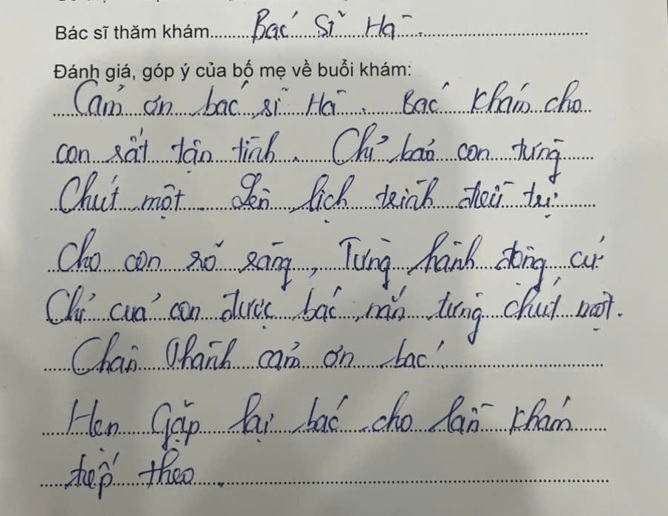 Bác sĩ thăm khám Bác Sĩ Hà
Đánh giá, góp ý của bố mẹ về buổi khám:
Cảm ơn bác sĩ Hà. Bác khám cho
con rất tận tình. Chỉ bảo con từng
Chút một. Lên lịch trình điều trị
Cho con rõ ràng, Từng hành động cử
Chỉ của con được bác nắn từng chút một.
Chân thành cảm ơn bác!
Hẹn Gặp lại bác cho lần khám
tiếp theo.